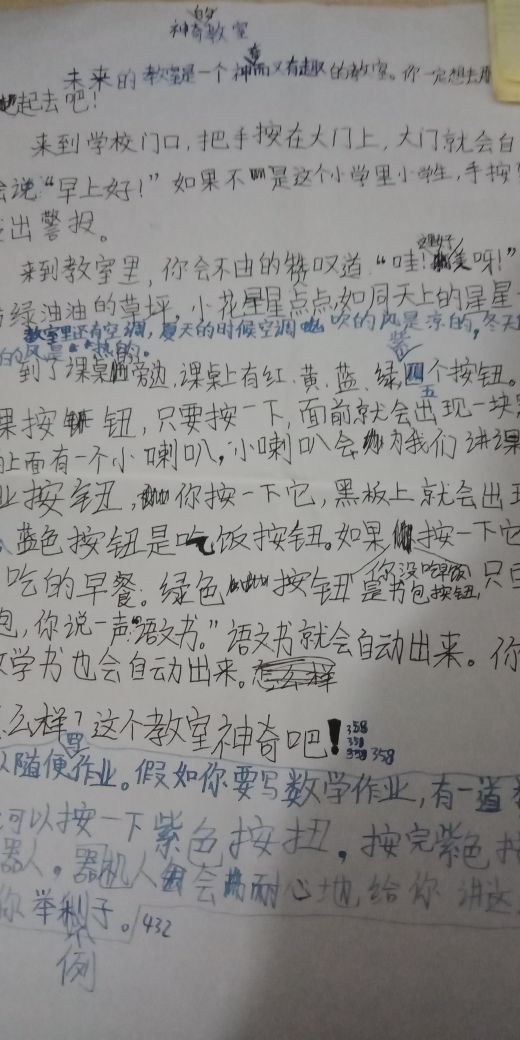 的
神奇教室
未来的教室是一个神奇而又有趣的教室。你一定想去
起去吧！
来到学校门口，把手按在大门上，大门就会自
会说“早上好！”如果不是这个小学里小学生，手按
出警报。
来到教室里，你会不由的 叹道“哇！ 美呀！”
绿油油的草坪，小花星星点点，如同天上的星星
教室里还有空调，夏天的时候空调吹的风是凉的，冬天
的风是热的。
紫
到了课桌旁边，课桌上有红、黄、蓝、绿 个按钮。
五
果按 钮，只要按一下，面前就会出现一块
上面有一个小喇叭，小喇叭会为我们讲课
业按钮，你按一下它，黑板上就会出现
蓝色按钮是吃饭按钮。如果 按一下它
你没吃早饭
吃的早餐。绿色 按钮是书包按钮，只
包，你说一声“语文书。”语文书就会自动出来。你
数学书也会自动出来。
怎么样？这个教室神奇吧！
358
358
358 358
写
以随便作业。假如你要写数学作业，有一道
可以按一下紫色按扭，按完紫色按
器人。器机人会耐心地，给你讲这
你举例子。 432
例